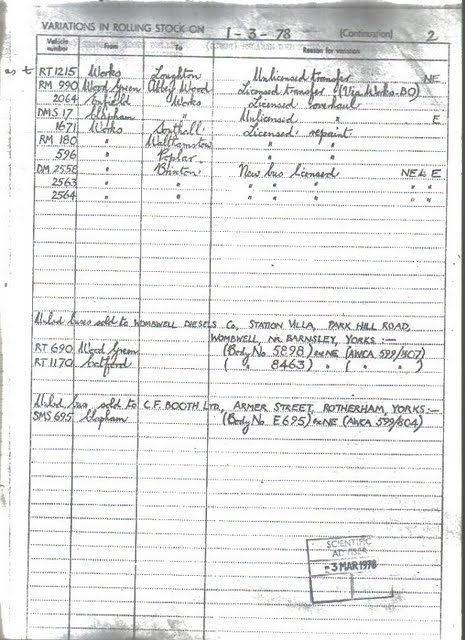 VARIATIONS IN ROLLING STOCK ON 1-3-78 (Continuation) 2
Vehicle number From To Reason for variation
RT 1215 Works Loughton Unlicensed transfer NE
RM 990 Wood Green Abbey Wood Licensed transfer (Via Works-BO)
2064 Enfield Works Licensed overhaul
DMS 17 Clapham " Unlicensed " E
1671 Works Southall Licensed repaint
RM 180 " Walthamstow " "
596 " Poplar " "
DM 2558 " Brixton New bus licensed NE & E
2563 " " " " " " "
2564 " " " " " " "
buses sold to WOMBWELL DIESELS Co, STATION VILLA, PARK HILL ROAD,
WOMBWELL, Nr BARNSLEY, YORKS :-
RT 690 Wood Green (Body No 5898) ex NE (AWCA 599/807)
RT 1170 Catford ( " 8463) " ( " " )
bus sold to C.F. BOOTH LTD., ARMER STREET, ROTHERHAM, YORKS:-
SMS 695 Clapham (Body No. E695) ex NE (AWCA 599/804)
SCIENTIFIC
ADVISER
-3 MAR 1978